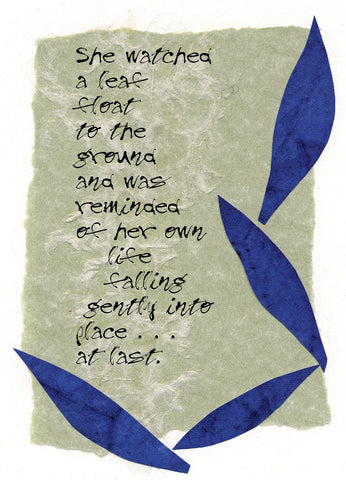 She watched
a leaf
float
to the
ground
and was
reminded
of her own
life
falling
gently into
place . . .
at last.